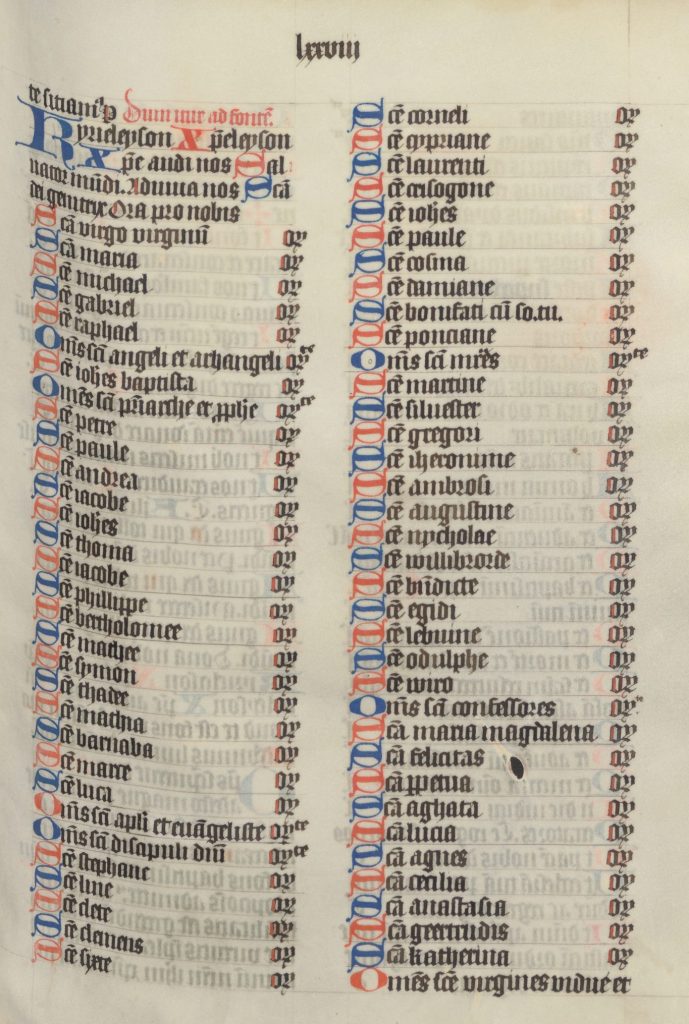 lxxviii
te sitiam̄ ꝑ Dum itur ad fontē.
Kyrieleyson Xp̄eleyson
Xp̄e audi nos Sal
uator mūdi. Adiuua nos Scā
dei genitrix Ora pro nobis
Scā virgo virginū or
Scā maria or
Scē michael or
Scē gabriel or
Scē raphael or
Om̄s scī angeli et archangeli orᵗᵉ
Scē ioh̄es baptista or
Om̄es scī pr̄iarche et ꝓph̄e orᵗᵉ
Scē petre or
Scē paule or
Scē andrea or
Scē iacobe or
Scē ioh̄es or
Scē thoma or
Scē iacobe or
Scē phillippe or
Scē bertholomee or
Scē mathee or
Scē symon or
Scē thadee or
Scē mathia or
Scē barnaba or
Scē marce or
Scē luca or
Om̄s scī apl̄i et euāgeliste orᵗᵉ
Om̄s scī discipuli dn̄i orᵗᵉ
Scē stephane or
Scē line or
Scē clete or
Scē clemens or
Scē sixte or
Scē corneli or
Scē cypriane or
Scē laurenti or
Scē crisogone or
Scē ioh̄es or
Scē paule or
Scē cosma or
Scē damiane or
Scē bonifati cū so.tu. or
Scē ponciane or
Om̄s scī mr̄es orᵗᵉ
Scē martine or
Scē siluester or
Scē gregori or
Scē iheronime or
Scē ambrosi or
Scē augustine or
Scē nycholae or
Scē willibrorde or
Scē bn̄dicte or
Scē egidi or
Scē lebuine or
Scē odulphe or
Scē wiro or
Om̄s scī confessores or
Scā maria magdalena or
Scā felicitas or
Scā ꝑpetua or
Scā aghata or
Scā lucia or
Scā agnes or
Scā cecilia or
Scā anastasia or
Scā geertrudis or
Scā katherina or
Om̄es scē virgines vidue et